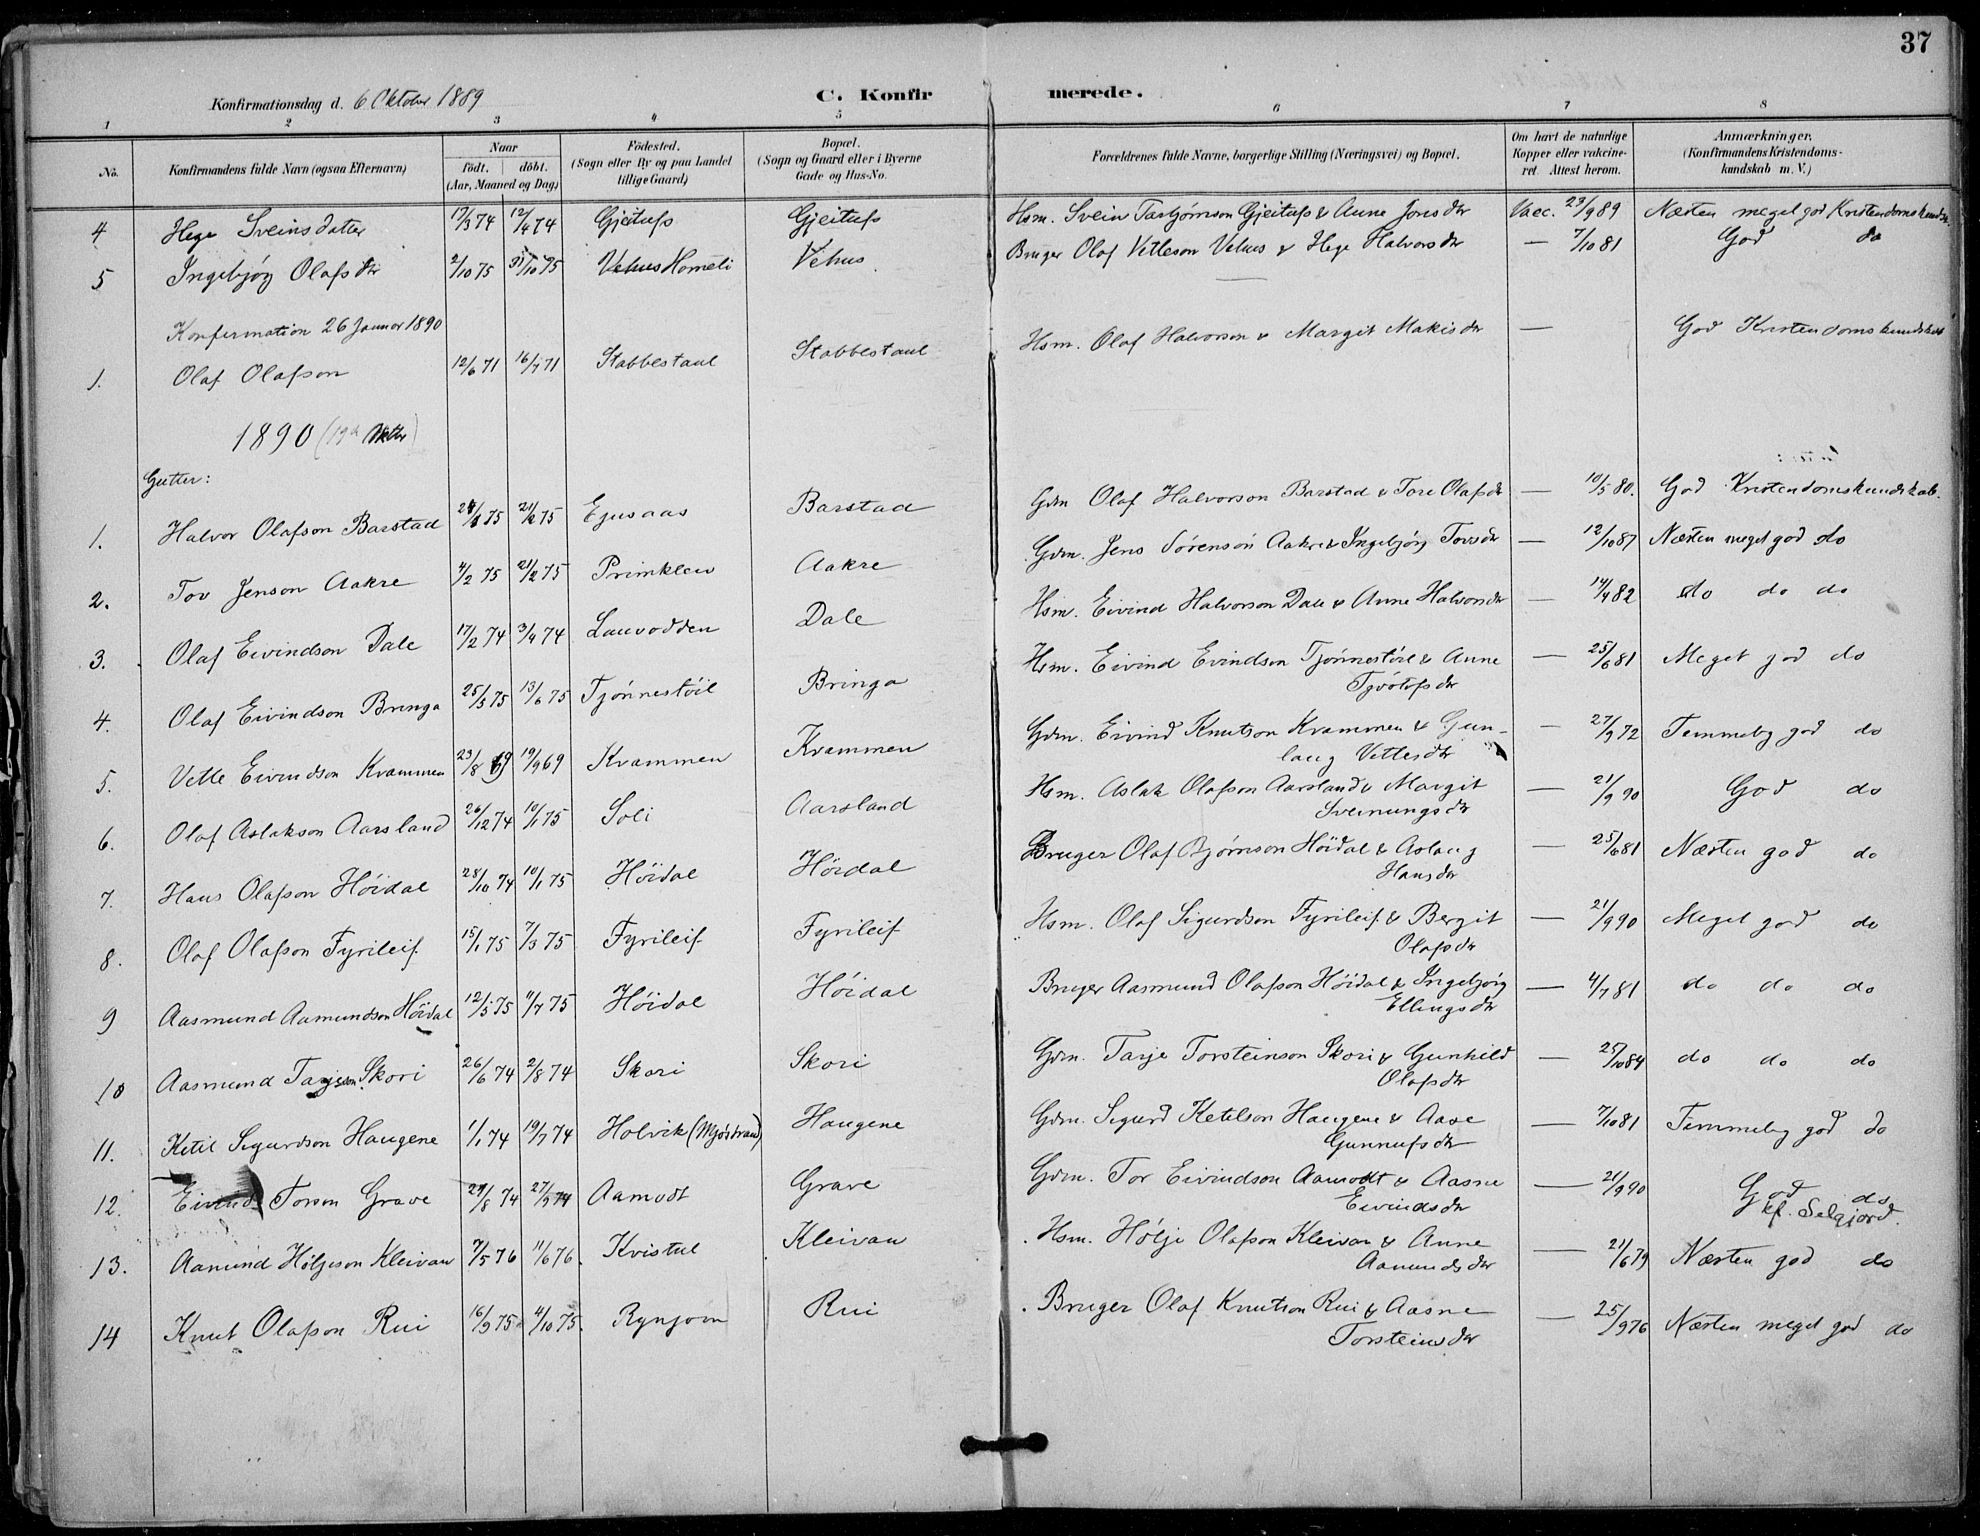 37
Konfirmationsdag d. 6 Oktober 1889 C. Konfirmerede.
1 2 3 4 5 6 7 8
No. Konfirmandens fulde Navn (ogsaa Efternavn) Naar födt. döbt. (Aar, Maaned og Dag) Födested. (Sogn eller By og paa Landet tillige Gaard) Bopæl. (Sogn og Gaard eller i Byerne Gade og Hus-No. Forældrenes fulde Navne, borgerlige Stilling (Næringsvei) og Bopæl. Om havt de naturlige Kopper eller vakcineret. Attest herom. Anmærkninger. (Konfirmandens Kristendomskundskab m. V.)
4 Hege Sveinsdatter 17/3 74 12/4 74 Gjeitufs Gjeitufs Hsm. Svein Tarjómson Gjeitufs & Anne Jonsdtr Vacc. 23/9 89 Næsten meget god Kristendomskundsk.
5 Ingebjög Olafsdtr 2/10 75 31/10 75 Vehus Homeli Vehus Bruger Olaf Vetleson Vehus & Hege Halvorsdtr — 7/10 81 God do
Konfirmation 26 Januar 1890
1. Olaf Olafson 12/6 71 16/7 71 Stabbestaul Stabbestaul Hsm. Olaf Halvorson & Margit Makisdtr — God Kristendomskundskab
1890
Gutter:
1. Halvor Olafson Barstad 75 21/2 75 Ejusaas Barstad Gdm Olaf Halvorson Barstad & Tore Olafsdtr — 10/5 80. God Kristendomskundskab.
2. Tov Jenson Aakre 4/2 75 21/2 75 Primklew Aakre Gdm. Jens Sörenson Aakre & Ingebjörg Tovsdtr — 12/10 87 Næsten meget god do
3. Olaf Eivindson Dale 17/2 74 3/4 74 Lauvodden Dale Hsm. Eivind Halvorson Dale & Anne Halvorsdtr — 14/4 82 do do do
4. Olaf Eivindson Bringa 25/5 75 13/6 75 Tjönnestöil Bringa Hsm. Eivind Evindson Tjönnestöil & Anne — 25/6 81 Meget god do
Tjvötufsdtr
5. Vetle Eivindson Kvammen 23/8 69 19/9 69 Kvammen Kvammen Gdm. Eivind Knutson Kvammen & Gun- — 27/9 72 Temmelig god do
laug Vetlesdtr
6. Olaf Aslakson Aarsland 26/12 74 10/1 75 Soli Aarsland Hsm. Aslak Olafson Aarsland & Margit — 21/9 90 God do
Sveinungsdtr
7. Hans Olafson Höidal 28/10 74 10/1 75 Höidal Höidal Bruger Olaf Bjömson Höidal & Aslaug — 25/6 81 Næsten god do
Hansdtr
8. Olaf Olafson Fyrileif. 15/1 75 7/3 75 Fyrileif Fyrileif Hsm. Olaf Sigurdson Fyrileif & Bergit — 21/9 90 Meget god do
Olafsdtr
9 Aasmund Aamundson Höidal 12/5 75 11/7 75 Höidal Höidal Bruger Aasmund Olafson Höidal & Ingebjörg — 4/7 81 do do do
Ellingsdtr
10 Aasmund Tarjeson Skori 26/6 74 2/8 74 Skori Skori Gdm. Tarje Torsteinson Skori & Gunhild — 25/10 84 do do do
Olafsdtr
11. Ketil Sigurdson Haugene 1/1 74 19/7 74 Holvik (Mjöstrand) Haugene Gdm. Sigurd Ketelson Haugene & Aase — 7/10 81 Temmelig god do
Gunnufsdtr
12. Eivind Torson Grave 29/8 74 27/9 74 Aamodt Grave Gdm. Tor Eivindson Aamodt & Aasne — 21/9 90 God do
Eivindsdtr kf. Selgjord.
13. Aamund Höljeson Kleivan 7/5 76 11/6 76. Kvistul Kleivan Hsm. Hölje Olafson Kleivan & Anne — 21/6 79 Næsten god do
Aamundsdtr
14 Knut Olafson Rui 16/9 75 4/10 75. Rynjom Rui Bruger Olaf Knutson Rui & Aasne — 25/9 76 Næsten meget god do
Torsteinsdtr